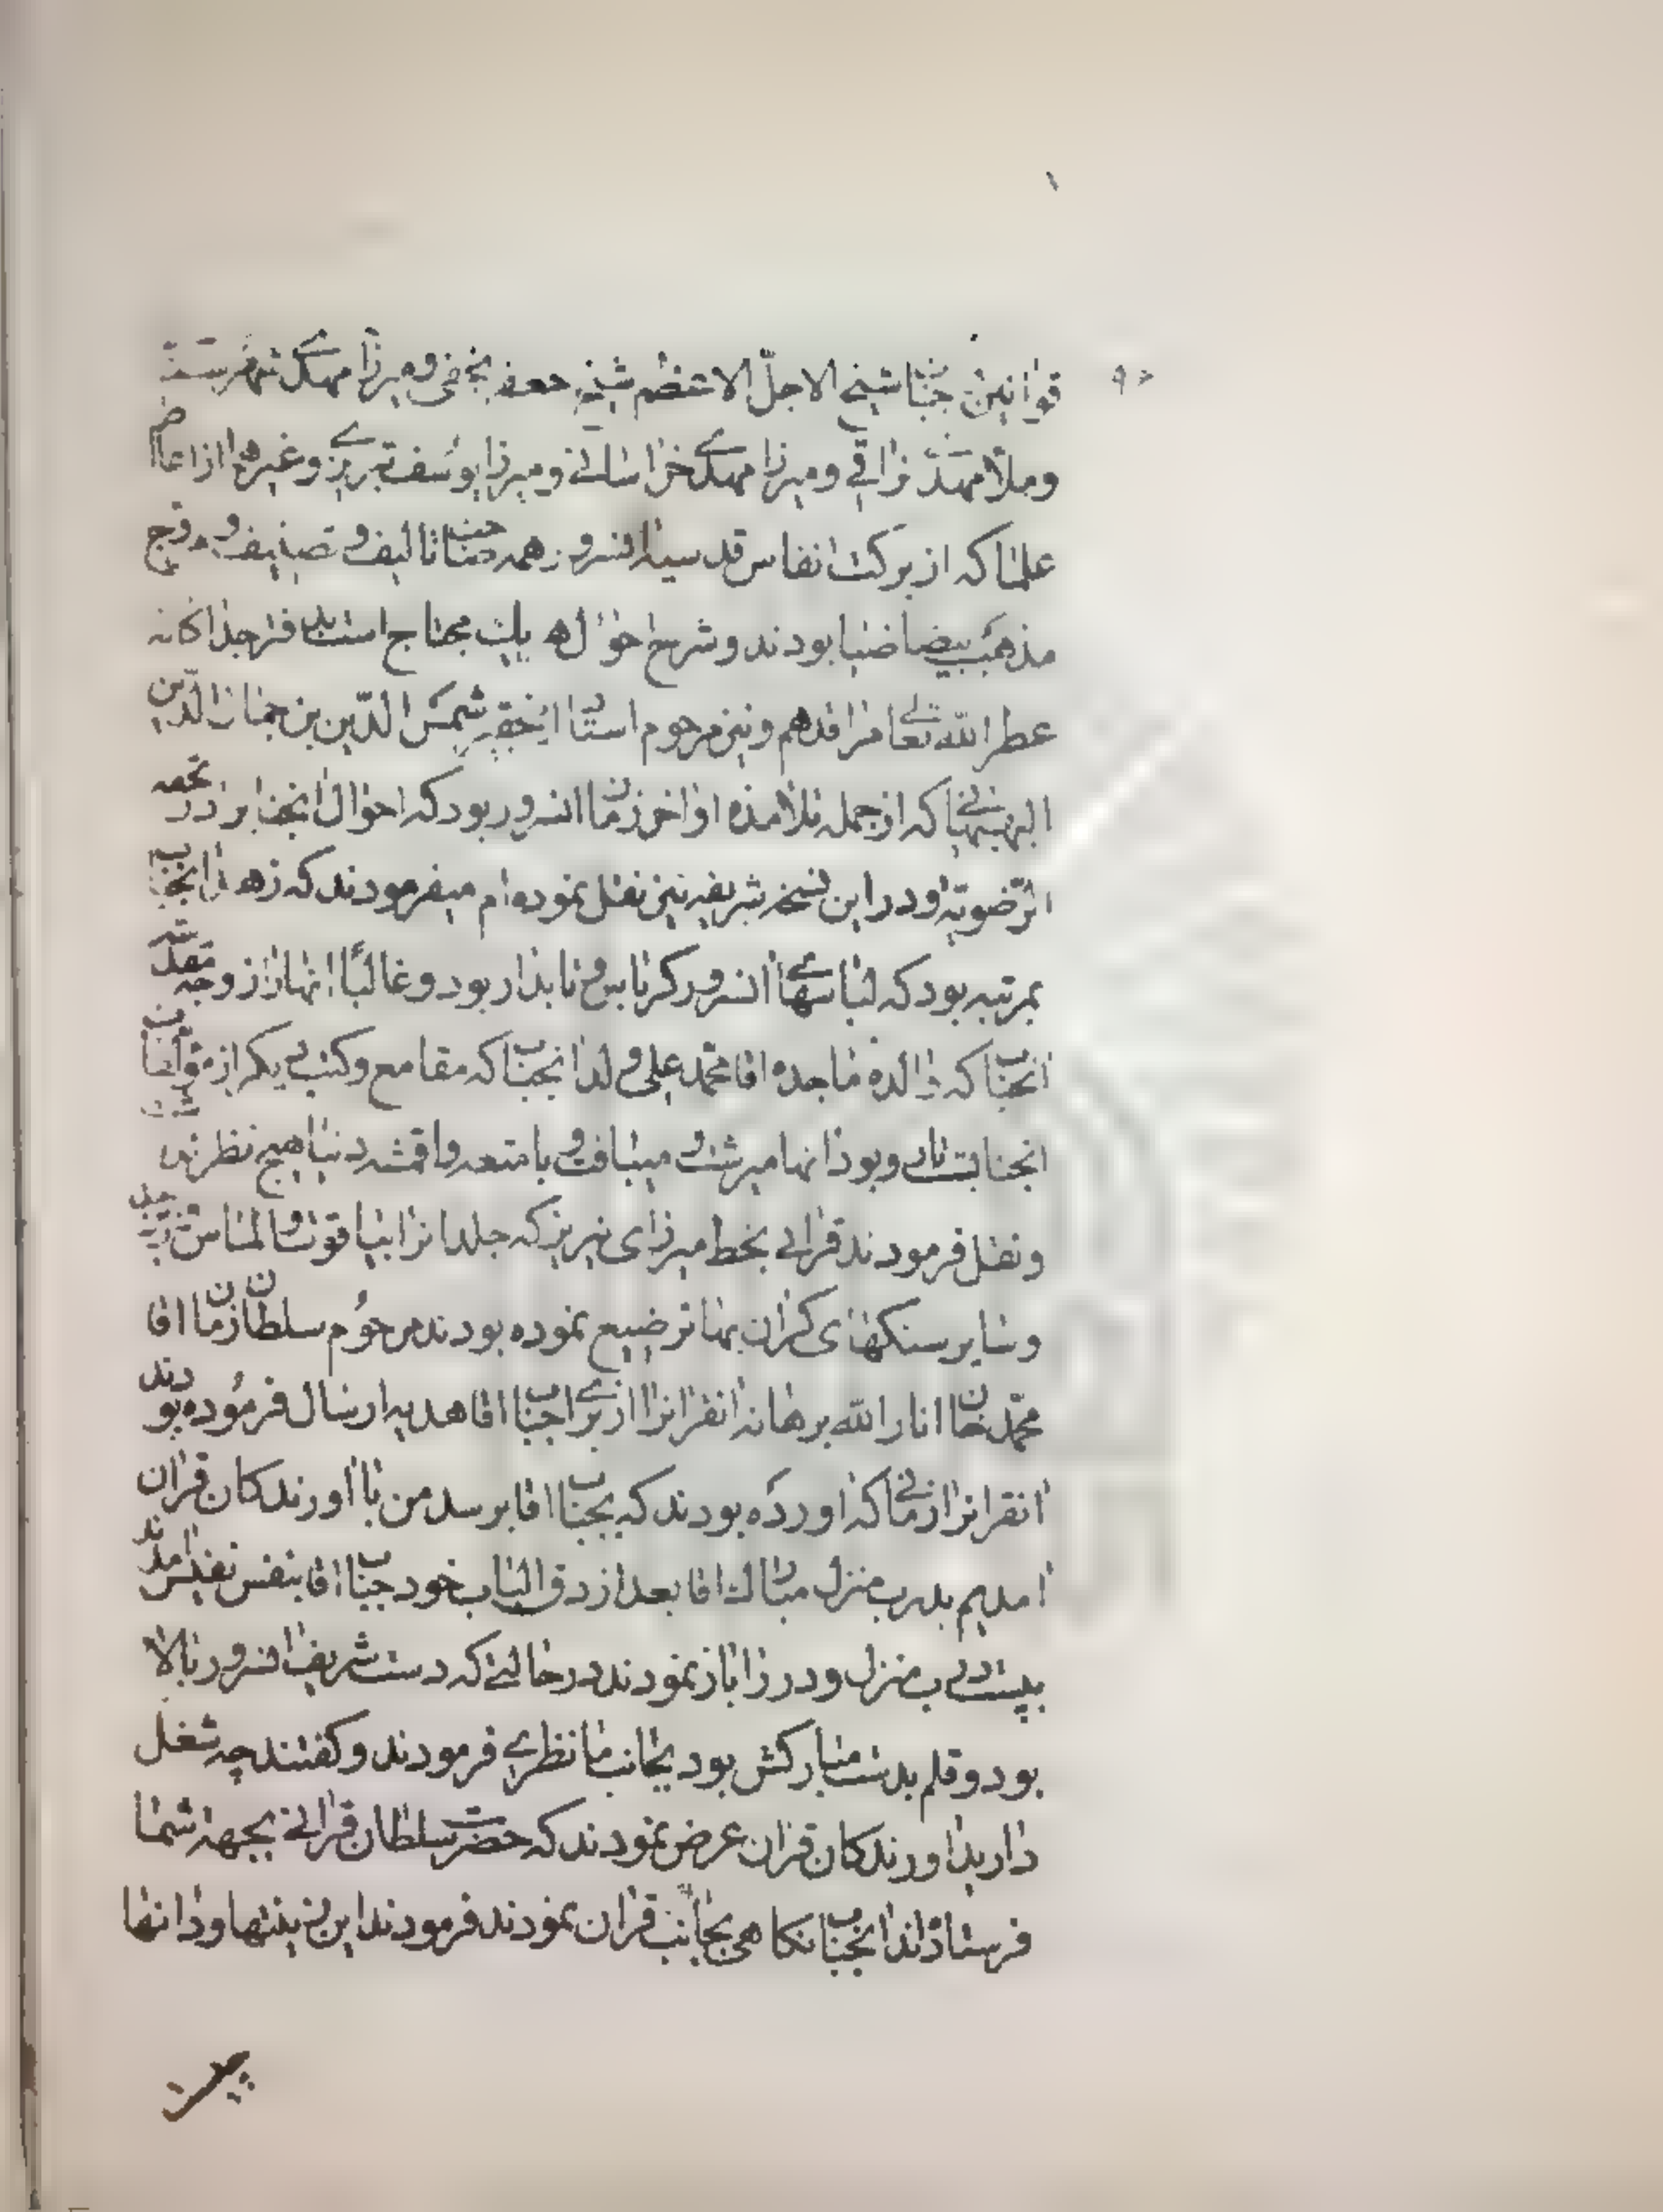 قوانین جناب شیخ الاجلّ الاعظم شیخ جعفر نجفی و میرزا مهدی شهرستانی
و ملا مهدی نراقی و میرزا مهدی خراسانی و میرزا یوسف تبریزی و غیرهم از اعاظم
علما که از برکت انفاس قدسیه انسرور همه صاحب تالیف و تصنیف و مروج
مذهب بیضا ضیا بودند و شرح احوال هر یک محتاج است بدفتر جداگانه
عطر الله تعالی مراقدهم و نیز مرحوم استاد اینحقیر شمس الدین بن جمال الدین
البهبهانی که از جمله تلامذه اواخر زمان انسرور بود که احوال انجناب را در تحفه
الرضویه و در این نسخه شریفه نیز نقل نموده‌ام میفرمودند که زهد انجناب
بمرتبه بود که لباسهای انسرور کرباس نابدار بود و غالبا انها را زوجه مقدسه
انجناب که والده ماجده اقا محمد علی ولد انجناب که مقامع و کتب دیگر از مؤلفات
انجناب است تار و پود انها میرشت و میبافت و بامتعه و اقمشه دنیا هیچ نظر نداشت
و نقل فرمودند قرانی بخط میرزای نیریز که جلد انرا بیاقوت و الماس و زبرجد
و سایر سنکهای کران بها ترضیع نموده بودند مرحوم سلطان زمان اقا
محمد خان انار الله برهانه انقرانرا از برای جناب اقا هدیه ارسال فرموده بودند
انقرانرا زمانی که اورده بودند که بجناب اقا برسد من با اورندکان قران
امدیم بدرب منزل مبارک اقا بعد از دق الباب خود جناب اقا بنفس نفیس امدند
بپشت درب منزل و در را باز نمودند در حالتی که دست شریف انسرور بالا
بود و قلم بدست مبارکش بود بجانب ما نظری فرمودند و کفتند چه شغل
دارید اورندکان قران عرض نمودند که حضرت سلطان قرانی بجهة شما
فرستاده‌اند انجناب نکاهی بجانب قران نمودند فرمودند این زینتها و دانها
چیست